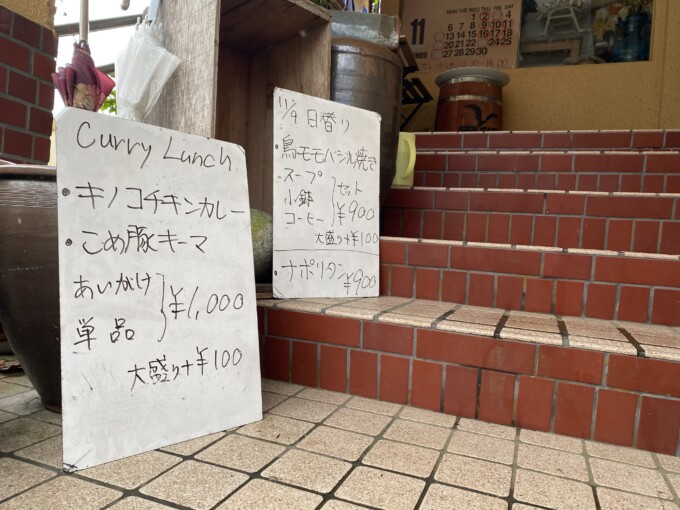 Curry Lunch
・キノコチキンカレー
・こめ豚キーマ
あいがけ
単品
¥1,000
大盛り+¥100
11/9 日替り
・鳥モモバジル焼き
スープ
小鉢
コーヒー
セット
¥900
大盛り+¥100
・ナポリタン ¥900
11
MON TUE WED THU FRI SAT